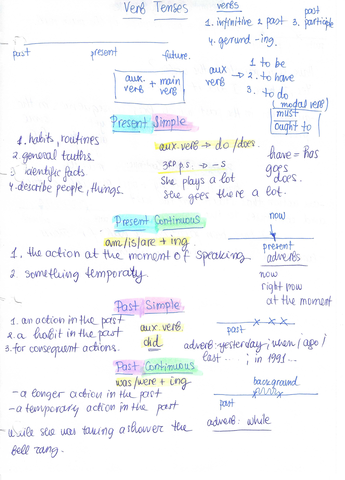 Verb Tenses
verbs
1. infinitive 2 past 3. past participle
4. gerund -ing.
past present future.
aux. verb + main verb
aux verb → 1 to be
2. to have
3. to do
(modal verb)
must
ought to
Present Simple
1. habits, routines
2. general truths.
3 scientific facts
4. describe people, things.
aux. verb → do / does.
3rd p.s. → -s
She plays a lot
She goes there a lot.
have = has
goes
does.
Present Continuous
am/is/are + ing
1. the action at the moment of speaking
2. something temporaty.
now
present
adverbs
now
right now
at the moment
Past Simple
1. an action in the past
2. a habit in the past
3. for consequent actions.
aux. verb.
did
past
adverb: yesterday; when; ago;
last ... ; in 1991...
Past Continuous
was/were + ing
- a longer action in the past
- a temporary action in the past
background
past
adverb: while
While she was taking a shower the
bell rang.